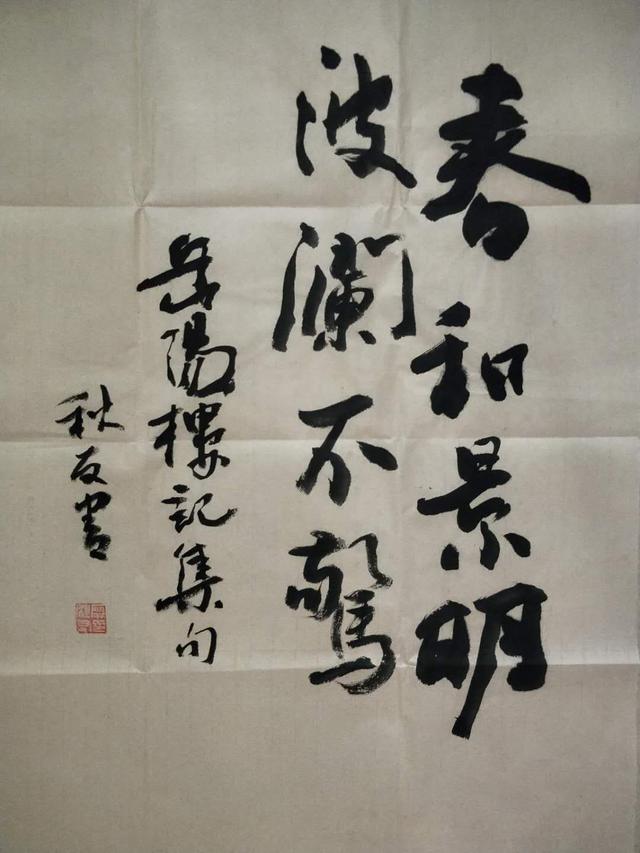 春和景明
波瀾不驚
岳陽樓記集句
秋友書